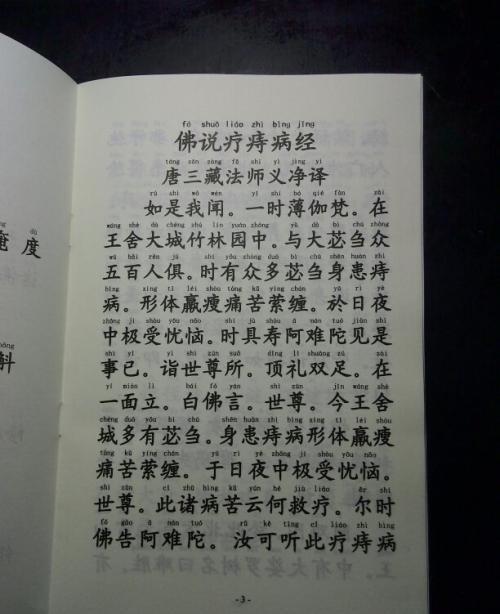 fó shuō liáo zhì bìng jīng
佛说疗痔病经
táng sān zàng fǎ shī yì jìng yì
唐三藏法师义净译
rú shì wǒ wén yī shí bó qié fàn zài
如是我闻。一时薄伽梵。在
wáng shè dà chéng zhú lín yuán zhōng yǔ dà bì chú zhòng
王舍大城竹林园中。与大苾刍众
wǔ bǎi rén jù shí yǒu zhòng duō bì chú shēn huàn zhì
五百人俱。时有众多苾刍身患痔
bìng xíng tǐ léi shòu tòng kǔ yíng chán yú rì yè
病。形体羸瘦痛苦萦缠。於日夜
zhōng jí shòu yōu nǎo shí jù shòu ā nán tuó jiàn shì
中极受忧恼。时具寿阿难陀见是
shì yǐ yì shì zūn suǒ dǐng lǐ shuāng zú zài
事已。诣世尊所。顶礼双足。在
yī miàn lì bái fó yán shì zūn jīn wáng shè
一面立。白佛言。世尊。今王舍
chéng duō yǒu bì chú shēn huàn zhì bìng xíng tǐ léi shòu
城多有苾刍。身患痔病形体羸瘦
tòng kǔ yíng chán yú rì yè zhōng jí shòu yōu nǎo
痛苦萦缠。于日夜中极受忧恼。
shì zūn cǐ zhū bìng kǔ yún hé jiù liáo ěr shí
世尊。此诸病苦云何救疗。尔时
fó gào ā nán tuó rǔ kě tīng cǐ liáo zhì bìng
佛告阿难陀。汝可听此疗痔病
-3-
dù
度